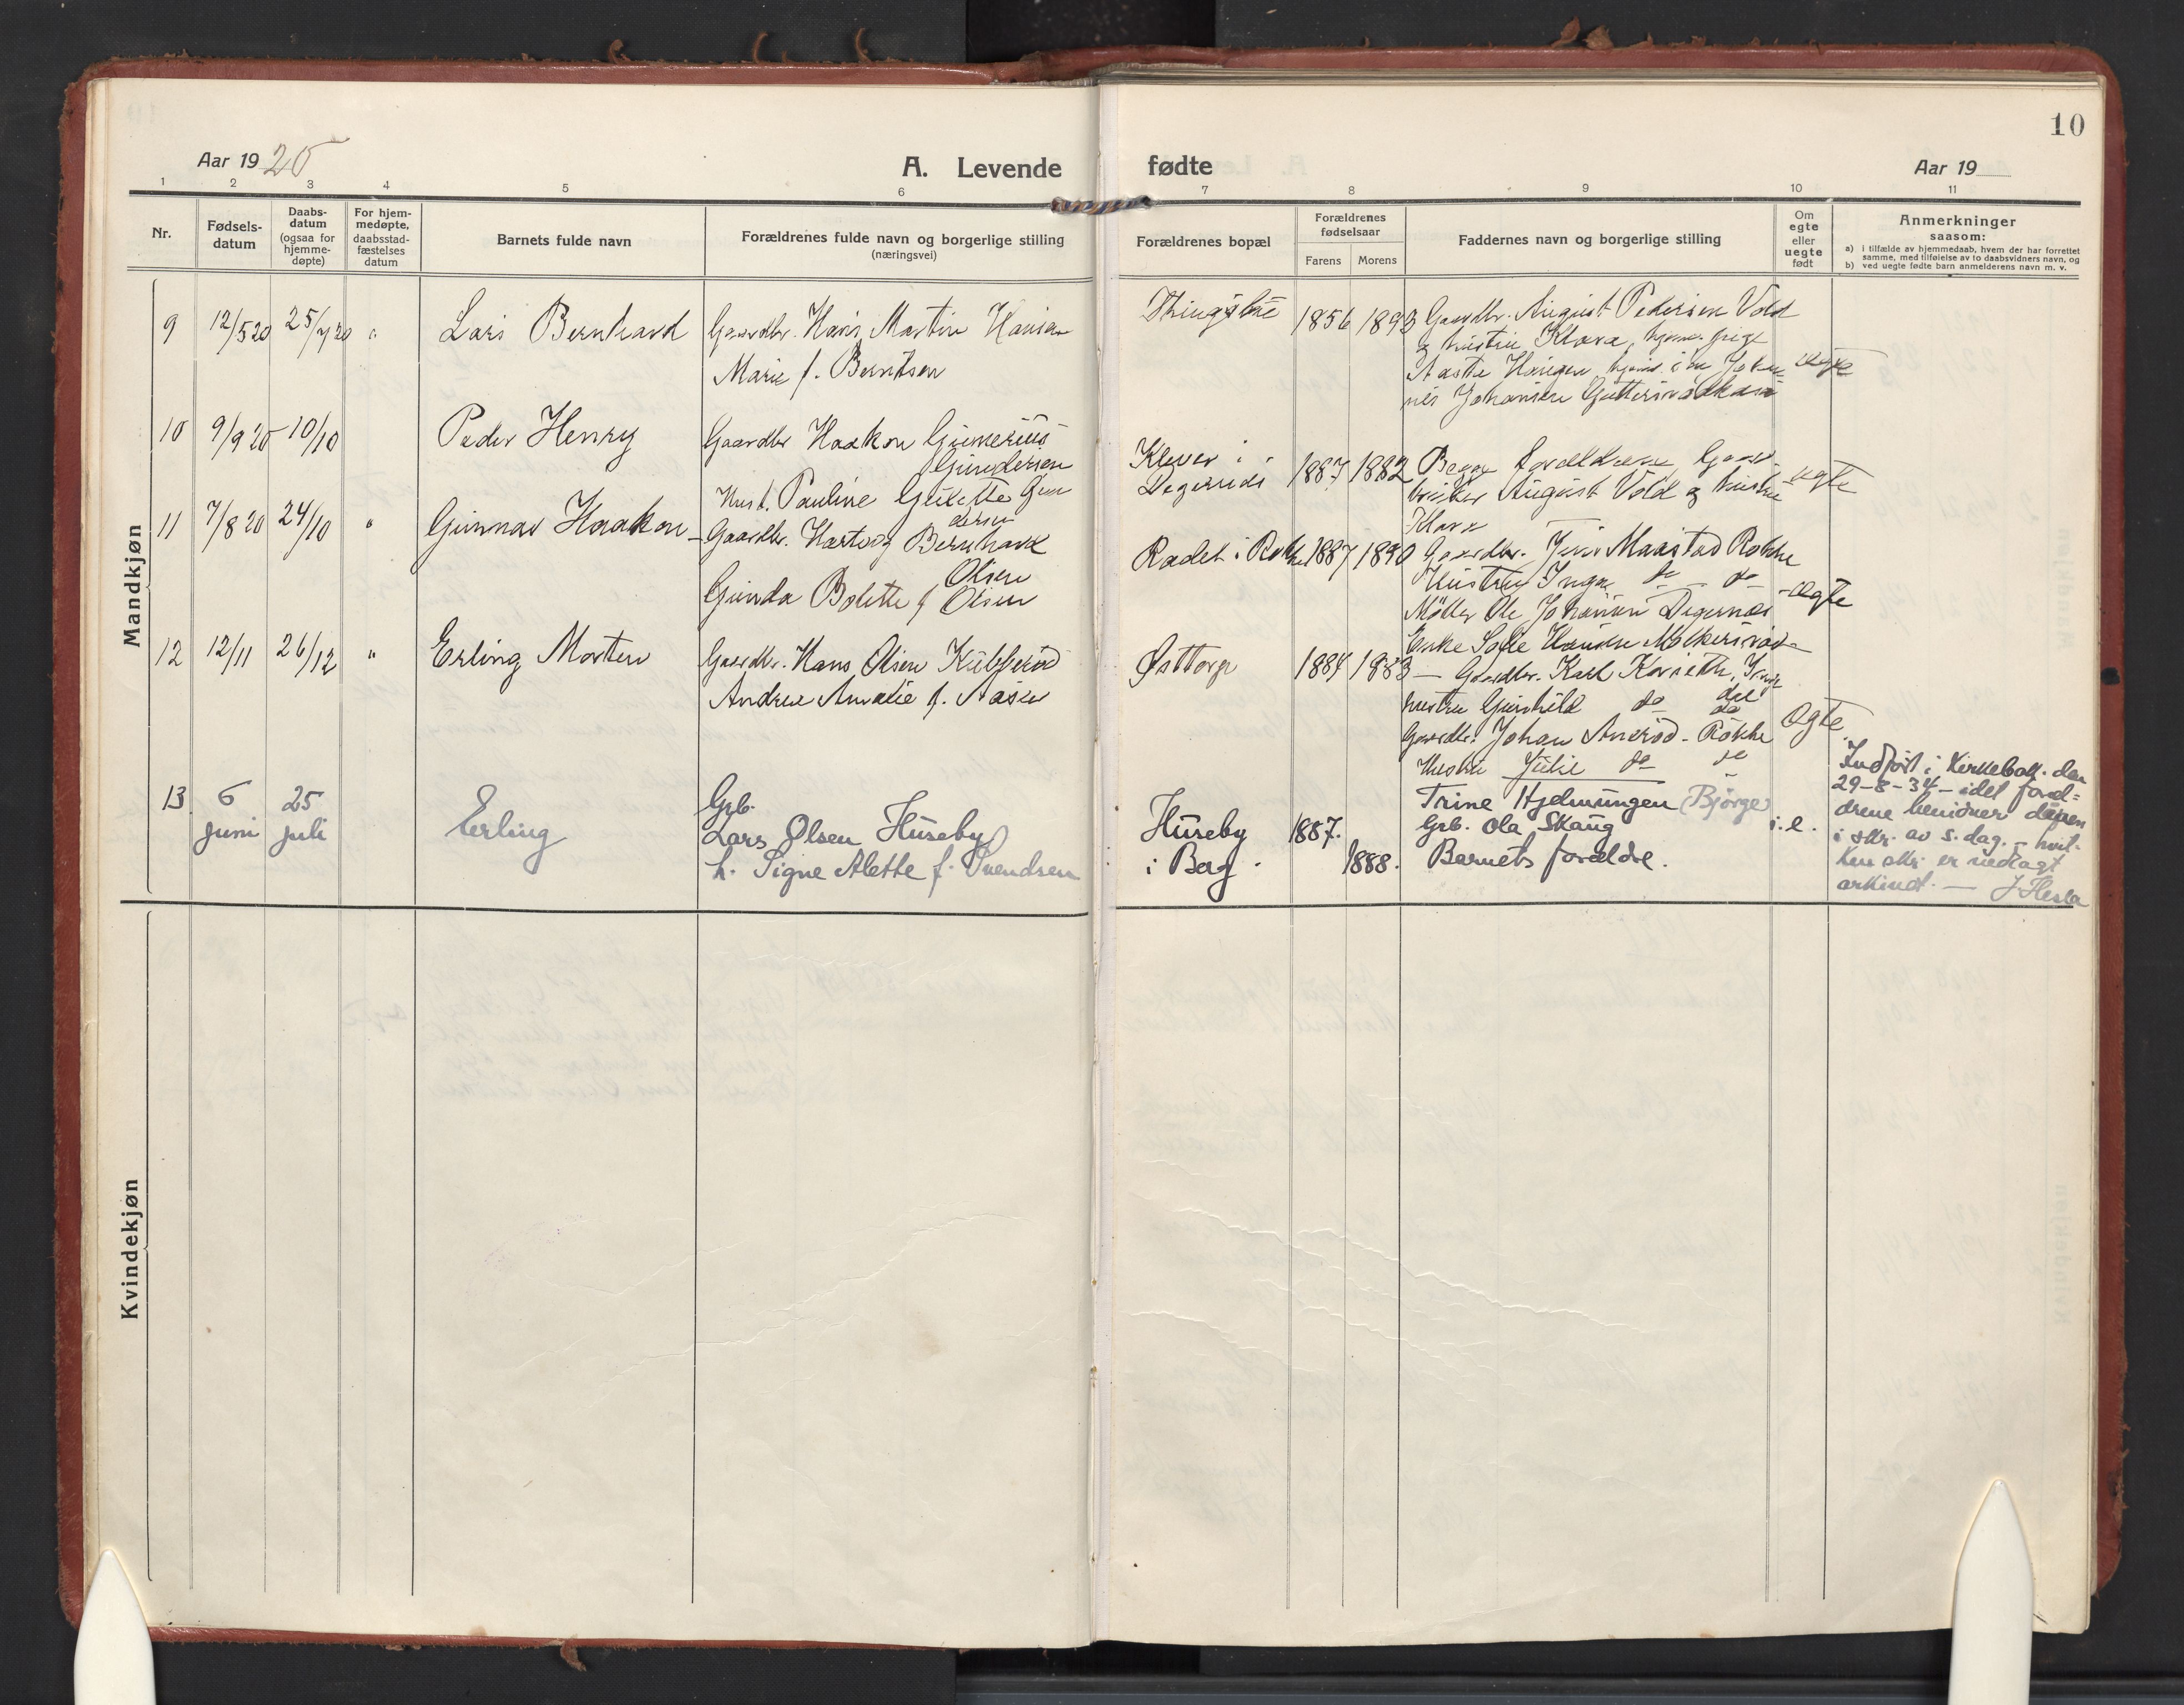 10
Aar 1920
A. Levende fødte
Aar 19
1 2 3 4 5 6 7 8 9 10 11
Nr.
Fødsels-
datum
Daabs-
datum
(ogsaa for
hjemme-
døpte)
For hjem-
medøpte,
daabsstad-
fæstelses
datum
Barnets fulde navn
Forældrenes fulde navn og borgerlige stilling
(næringsvei)
Forældrenes bopæl
Forældrenes
fødselsaar
Farens Morens
Faddernes navn og borgerlige stilling
Om
egte
eller
uegte
født
Anmerkninger
saasom:
a) i tilfælde av hjemmedaab, hvem der har forrettet
samme, med tilføielse av to daabsvidners navn, og
b) ved uegte fødte barn anmelderens navn m. v.
Mandkjøn
9 12/5 20 25/7 20 " Lars Bernhard
Gaardbr. Hans Martin Hansen
Marie f. Berntsen
1856 1893
Gaardbr. August Pedersen Vold
& hustru Klara, hjemv. pige
Aaste
Johansen
10 9/9 20 10/10 Peder Henry
Gaardbr Haakon Gunerius
Gundersen
Hust. Pauline
Klever i
1887 1882
Begge forældrene, Gaard-
bruker August Vold & hustru
Klara
egte
11 7/8 20 24/10 " Gunnar Haakon
Gaardbr. Hartvig Bernhard
Olsen
Gunda Bolette f Olsen
Rødet i Rokke 1887 1890
Gaardbr. Maastad Rokke
Hustru Inga do do
Møller Ole Johansen Degernæs
Enke
Ægte
12 12/11 26/12 " Erling Morten
Gaardbr. Hans Olsen
Andrea Amalie f. Aasen
Østtorp 1884 1883
Gaardbr. Karl
hustru Gunhild do
Gaardbr. Johan Rokke
Hustru Julie do do
Ægte
13 6
juni
25
juli
Erling
Grb.
Lars Olsen Huseby
h. Signe Alette f. Svendsen
Huseby
i Bag.
1887.
1888.
Trine Hjelmungen (Bjørge)
Grb. Ola Skaug
Barnets forældre.
i. e.
Indført i Kirkebok. den
29-8-34 - idet foræl=
drene bevidner dåpen
i skr. av s. dag. - hvil-
ken skr. er nedlagt
arkivet. — J Hesla
Kvindekjøn